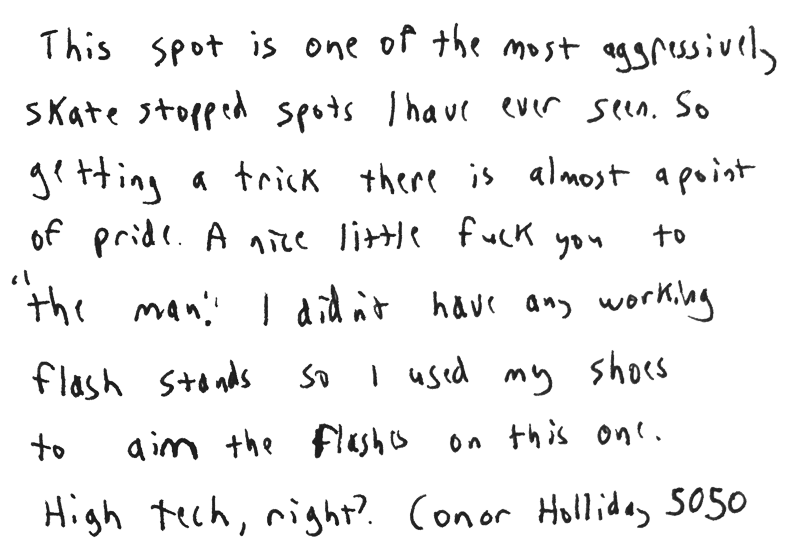 This spot is one of the most aggressively
skate stopped spots I have ever seen. So
getting a trick there is almost a point
of pride. A nice little fuck you to
"the man". I didn't have any working
flash stands so I used my shoes
to aim the flashes on this one.
High tech, right? Conor Holliday 5050